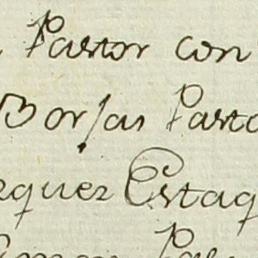 Pastor con
Borjas Pasto
zquez Estaq